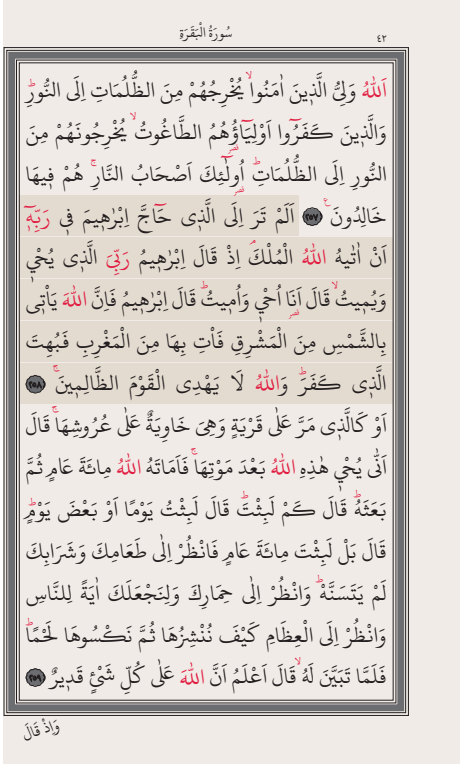 سُورَةُ الْبَقَرَةِ
٤٢
اَللّٰهُ وَلِيُّ الَّذ۪ينَ اٰمَنُواۙ يُخْرِجُهُمْ مِنَ الظُّلُمَاتِ اِلَى النُّورِۜ
وَالَّذ۪ينَ كَفَرُٓوا اَوْلِيَٓاؤُ۬هُمُ الطَّاغُوتُۙ يُخْرِجُونَهُمْ مِنَ
النُّورِ اِلَى الظُّلُمَاتِۜ اُو۬لٰٓئِكَ اَصْحَابُ النَّارِۚ هُمْ ف۪يهَا
خَالِدُونَ۟ ﴿٢٥٧﴾ اَلَمْ تَرَ اِلَى الَّذ۪ي حَٓاجَّ اِبْرٰه۪يمَ ف۪ي رَبِّه۪ٓ
اَنْ اٰتٰيهُ اللّٰهُ الْمُلْكَۢ اِذْ قَالَ اِبْرٰه۪يمُ رَبِّيَ الَّذ۪ي يُحْي۪
وَيُم۪يتُۙ قَالَ اَنَا۬ اُحْي۪ وَاُم۪يتُۜ قَالَ اِبْرٰه۪يمُ فَاِنَّ اللّٰهَ يَأْت۪ي
بِالشَّمْسِ مِنَ الْمَشْرِقِ فَأْتِ بِهَا مِنَ الْمَغْرِبِ فَبُهِتَ
الَّذ۪ي كَفَرَۜ وَاللّٰهُ لَا يَهْدِي الْقَوْمَ الظَّالِم۪ينَۚ ﴿٢٥٨﴾
اَوْ كَالَّذ۪ي مَرَّ عَلٰى قَرْيَةٍ وَهِيَ خَاوِيَةٌ عَلٰى عُرُوشِهَاۚ قَالَ
اَنّٰى يُحْي۪ هٰذِهِ اللّٰهُ بَعْدَ مَوْتِهَاۚ فَاَمَاتَهُ اللّٰهُ مِائَةَ عَامٍ ثُمَّ
بَعَثَهُۜ قَالَ كَمْ لَبِثْتَۜ قَالَ لَبِثْتُ يَوْمًا اَوْ بَعْضَ يَوْمٍۜ
قَالَ بَلْ لَبِثْتَ مِائَةَ عَامٍ فَانْظُرْ اِلٰى طَعَامِكَ وَشَرَابِكَ
لَمْ يَتَسَنَّهْۚ وَانْظُرْ اِلٰى حِمَارِكَ وَلِنَجْعَلَكَ اٰيَةً لِلنَّاسِ
وَانْظُرْ اِلَى الْعِظَامِ كَيْفَ نُنْشِزُهَا ثُمَّ نَكْسُوهَا لَحْمًاۜ
فَلَمَّا تَبَيَّنَ لَهُۙ قَالَ اَعْلَمُ اَنَّ اللّٰهَ عَلٰى كُلِّ شَيْءٍ قَد۪يرٌ ﴿٢٥٩﴾
وَاِذْ قَالَ